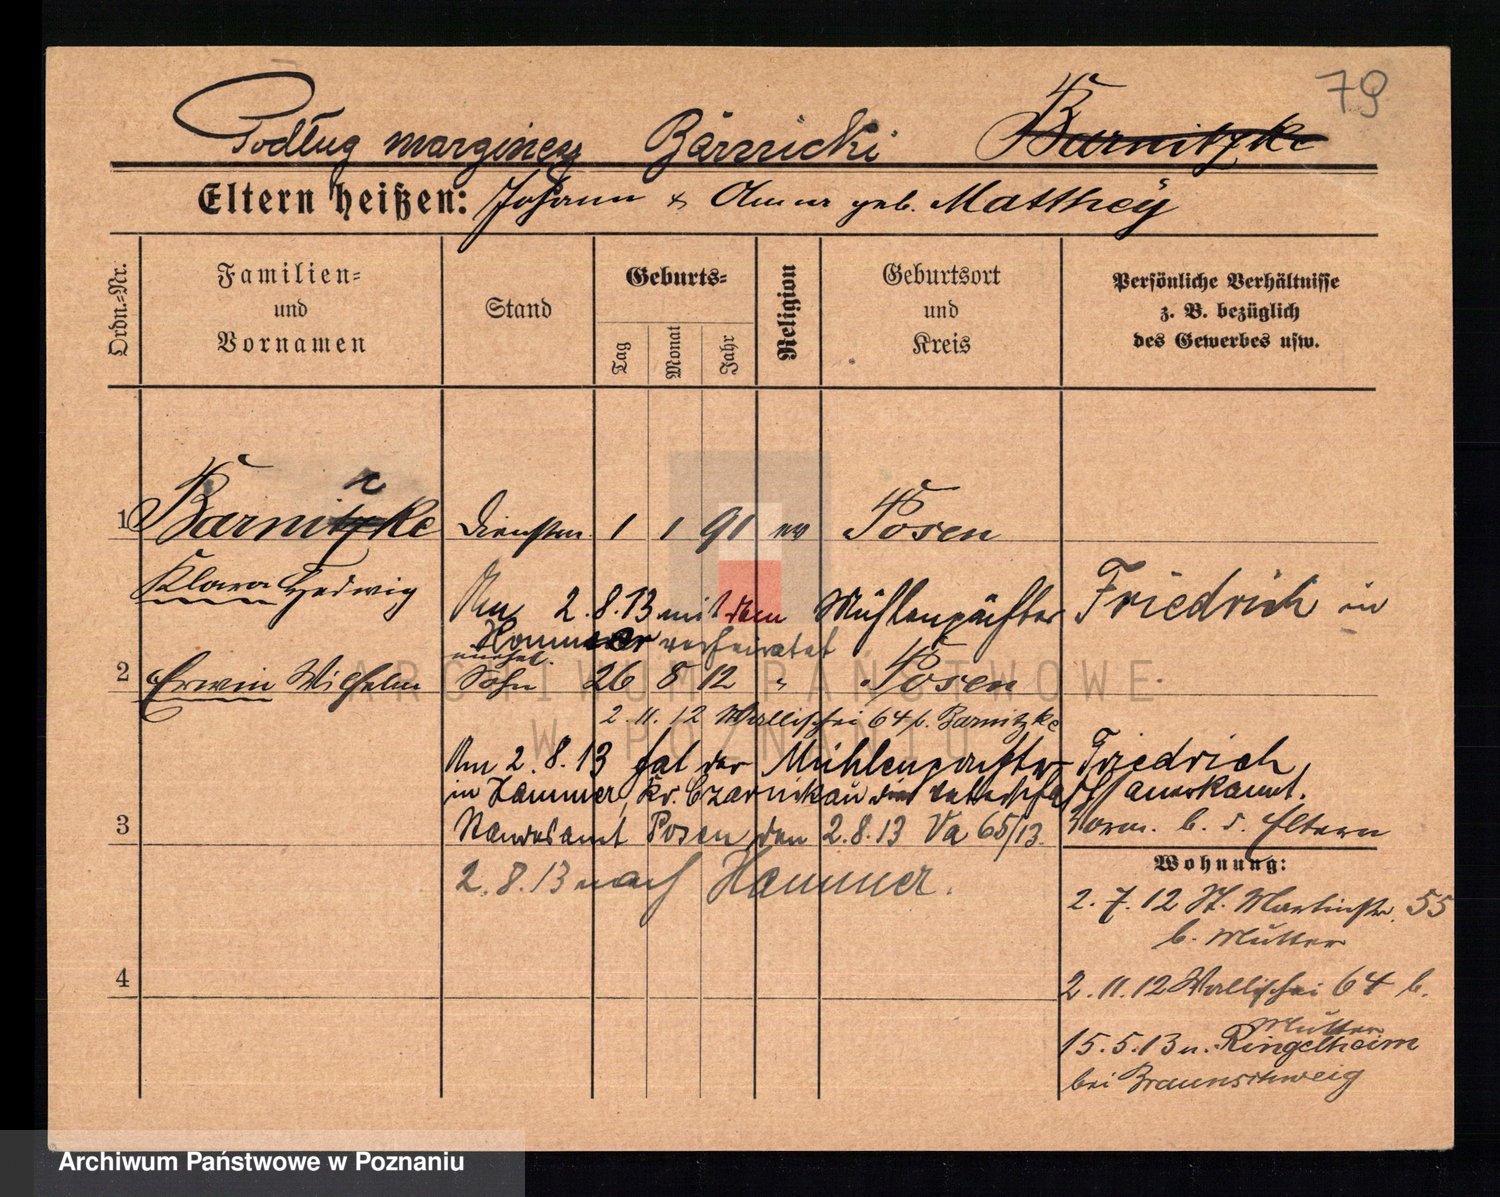 79
Podług marginesu Bärnicki Barnitzke
Eltern heißen: Johann & Anna geb. Matthey
Ordn.=Nr.
Familien=
und
Vornamen
Stand
Geburts=
Tag
Monat
Jahr
Religion
Geburtsort
und
Kreis
Persönliche Verhältnisse
z. B. bezüglich
des Gewerbes usw.
1 Barnitzke Dienstm. 1 1 91 ev Posen
Klara Hedwig
Am 2.8.13 mit dem Mühlenpächter Friedrich in
Hammer verheiratet
unehel.
2 Erwin Wilhelm Sohn 26 8 12 " Posen
2.11.12 Wallischei 64 b. Barnitzke
Am 2.8.13 hat der Mühlenpächter Friedrich,
in Hammer, Kr. Czarnikau die Vaterschaft anerkannt.
3 Standesamt Posen, den 2.8.13 Va 65/13. Vorm. b. d. Eltern
2.8.13 nach Hammer.
Wohnung:
2.7.12 St. Martinstr. 55
b. Mutter
4
2.11.12 Wallischei 64 b.
Mutter
15.5.13 n. Ringelheim
bei Braunschweig
ARCHIWUM PAŃSTWOWE
W POZNANIU
Archiwum Państwowe w Poznaniu